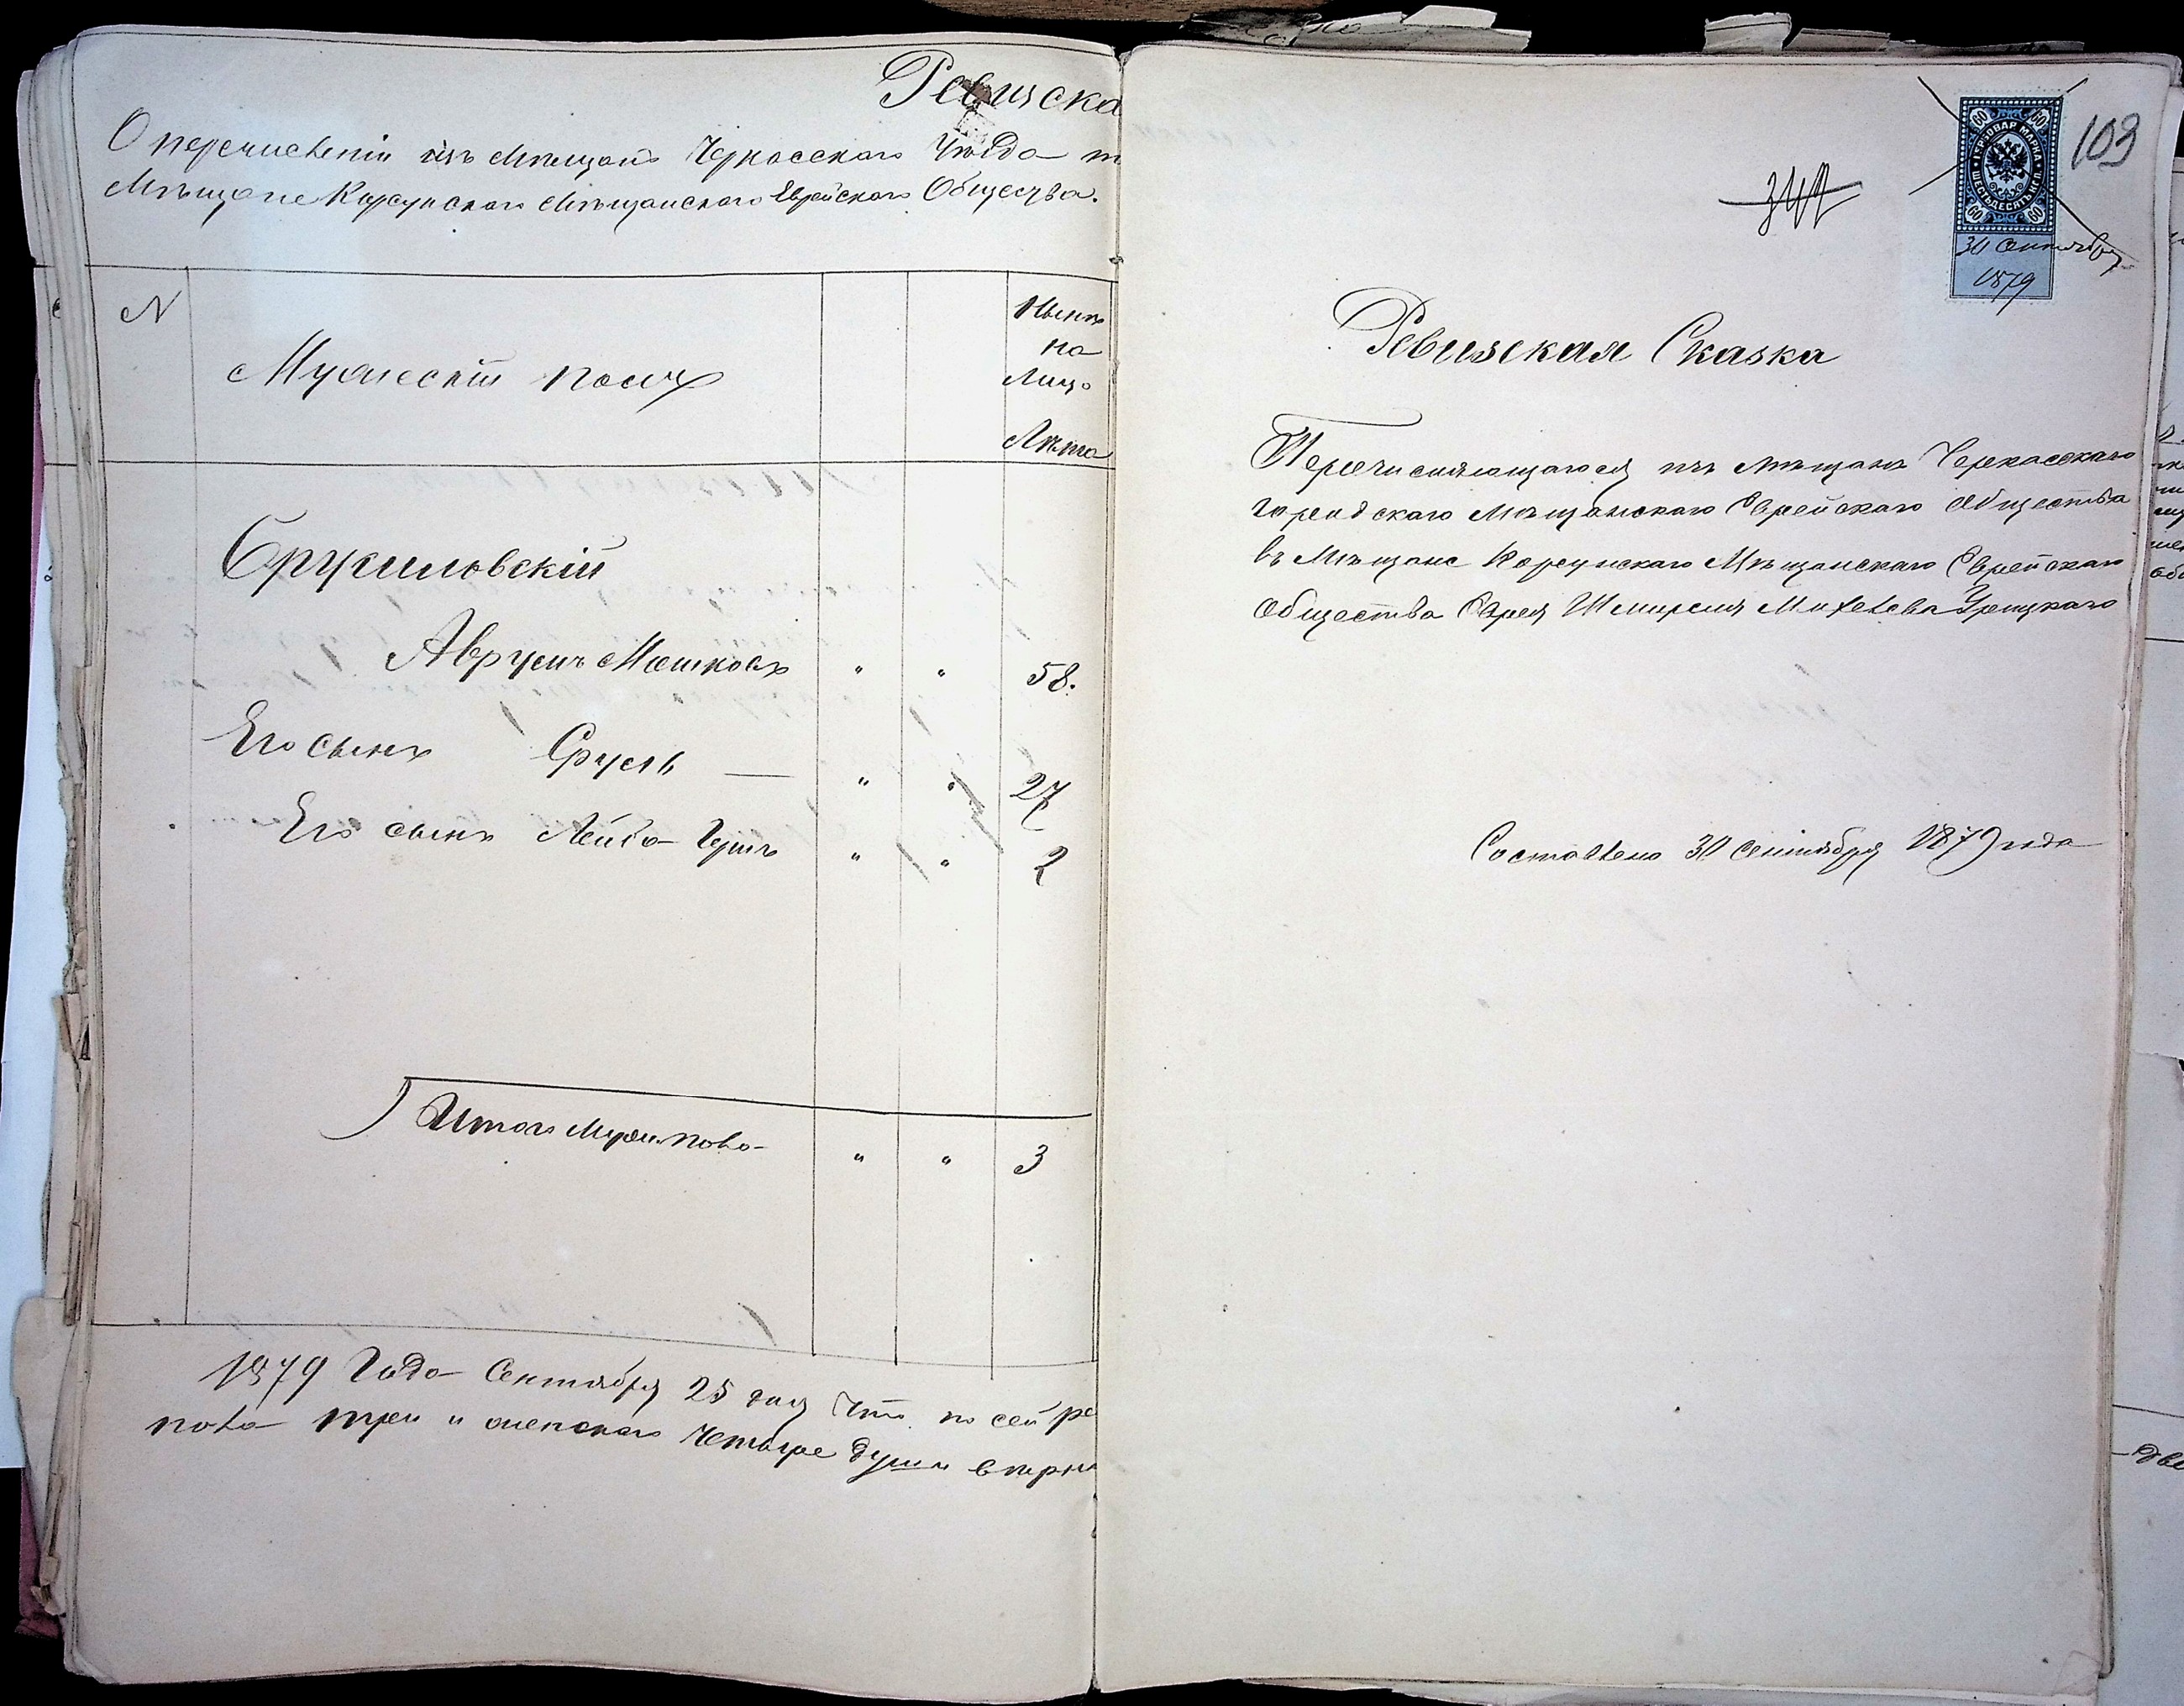 Ревизска
О перечислении изъ Мѣщанъ Черкасскаго Уѣзда
Мѣщане Корсунскаго Мѣщанскаго Еврейскаго Общества.
N
Мужескій полъ
Нынѣ
на
Лицо
Лѣта
Брусиловскій
Аврумъ Мошковъ " " 58.
Его сынъ Сруль — " " 27
Его сынъ Лейба-Гершъ " " 2
Итого Мужес. пола " " 3
1879 Года Сентября 25 дня Что по сей ре
пола три и женскаго четыре души
103
ГЕРБОВАЯ МАРКА
ШЕСТЬДЕСЯТЪ КОП.
60 60
60 60
30 Сентября
1879
Ревизская Сказка
Перечисляющагося изъ мѣщанъ Черкасскаго
городскаго Мѣщанскаго Еврейскаго Общества
въ Мѣщане Корсунскаго Мѣщанскаго Еврейскаго
Общества Еврея Шмиреля Михелева Урицкаго
Составлена 30 Сентября 1879 года